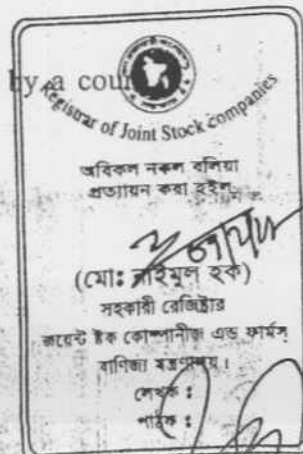 by a cour
Registrar of Joint Stock companies
অবিকল নকল বলিয়া
প্রত্যায়ন করা হইল
(মোঃ নাইমুল হক)
সহকারী রেজিষ্ট্রার
জয়েন্ট ষ্টক কোম্পানীজ এন্ড ফার্মস
বাণিজ্য মন্ত্রণালয়।
লেখক :
পাঠক :